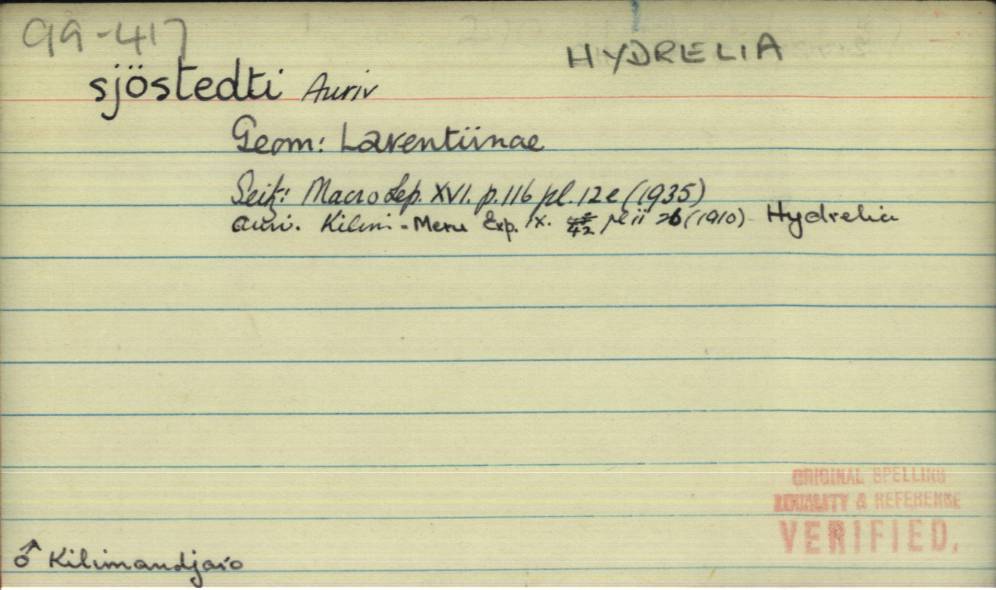 99-417
HYDRELIA
sjöstedti Auriv
Geom: Larentiinae
Seitz: Macrolep. XVI. p.116 pl.12e (1935)
Auri. Kilim-Meru Exp. IX. 42 pl ii 26 (1910) Hydrelia
ORIGINAL SPELLING
LOCALITY & REFERENCE
VERIFIED.
♂ Kilimandjaro